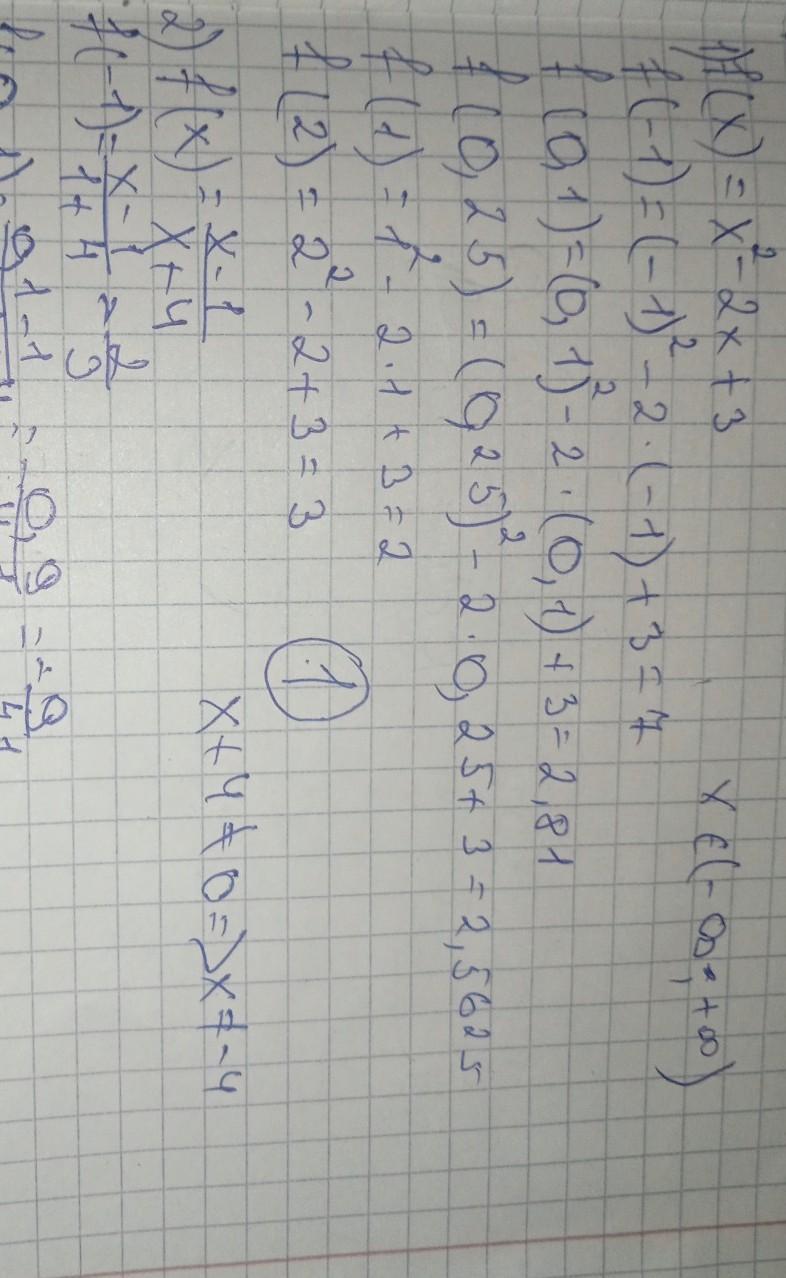 1) f(x) = x² - 2x + 3 x ∈ (-∞; +∞)
f(-1) = (-1)² - 2·(-1) + 3 = 7
f(0,1) = (0,1)² - 2·(0,1) + 3 = 2,81
f(0,25) = (0,25)² - 2·0,25 + 3 = 2,5625
f(1) = 1² - 2·1 + 3 = 2
f(2) = 2² - 2 + 3 = 3
1
2) f(x) = x-1/x+4 x+4≠0 => x≠-4
f(-1) = x-1/1+4 = 2/3
0,1-1 = -0,9 = -9/41